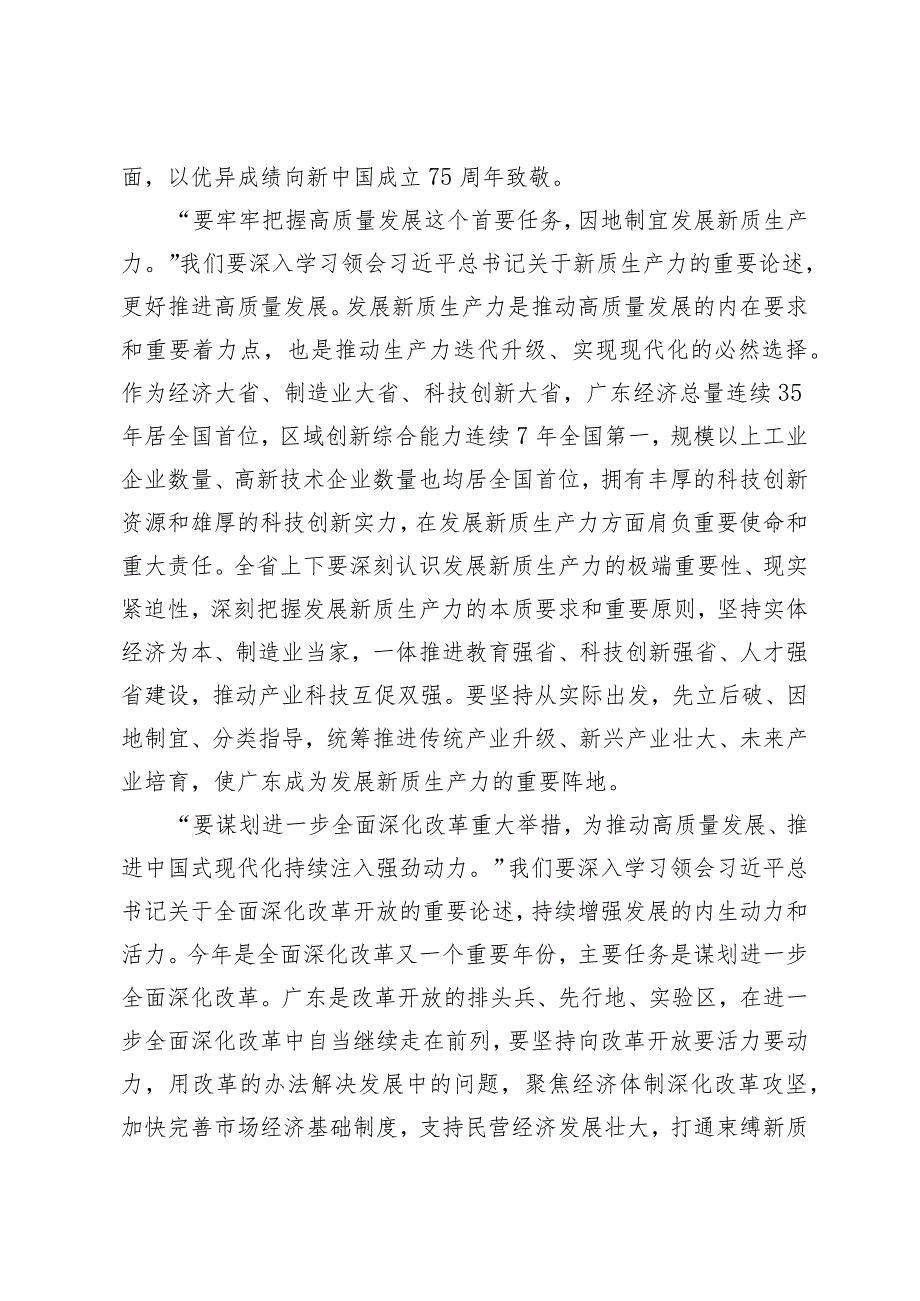 面，以优异成绩向新中国成立 75 周年致敬。
“要牢牢把握高质量发展这个首要任务，因地制宜发展新质生产
力。”我们要深入学习领会习近平总书记关于新质生产力的重要论述，
更好推进高质量发展。发展新质生产力是推动高质量发展的内在要求
和重要着力点，也是推动生产力迭代升级、实现现代化的必然选择。
作为经济大省、制造业大省、科技创新大省，广东经济总量连续 35
年居全国首位，区域创新综合能力连续 7 年全国第一，规模以上工业
企业数量、高新技术企业数量也均居全国首位，拥有丰厚的科技创新
资源和雄厚的科技创新实力，在发展新质生产力方面肩负重要使命和
重大责任。全省上下要深刻认识发展新质生产力的极端重要性、现实
紧迫性，深刻把握发展新质生产力的本质要求和重要原则，坚持实体
经济为本、制造业当家，一体推进教育强省、科技创新强省、人才强
省建设，推动产业科技互促双强。要坚持从实际出发，先立后破、因
地制宜、分类指导，统筹推进传统产业升级、新兴产业壮大、未来产
业培育，使广东成为发展新质生产力的重要阵地。
“要谋划进一步全面深化改革重大举措，为推动高质量发展、推
进中国式现代化持续注入强劲动力。”我们要深入学习领会习近平总
书记关于全面深化改革开放的重要论述，持续增强发展的内生动力和
活力。今年是全面深化改革又一个重要年份，主要任务是谋划进一步
全面深化改革。广东是改革开放的排头兵、先行地、实验区，在进一
步全面深化改革中自当继续走在前列，要坚持向改革开放要活力要动
力，用改革的办法解决发展中的问题，聚焦经济体制深化改革攻坚，
加快完善市场经济基础制度，支持民营经济发展壮大，打通束缚新质